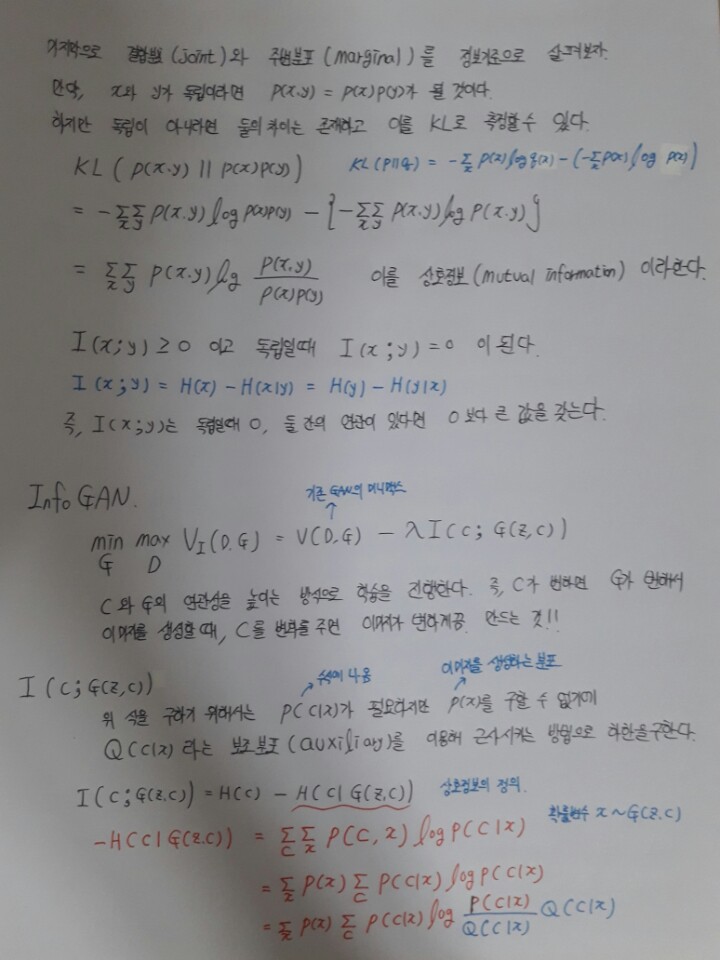 마지막으로 결합분포(joint)와 주변분포(marginal)를 정보기준으로 살펴보자.
만약, x와 y가 독립이라면 P(x,y) = P(x)P(y)가 될 것이다.
하지만 독립이 아니라면 둘의 차이는 존재하고 이를 KL로 측정할 수 있다.
KL ( P(x,y) || P(x)P(y) ) KL(P||q) = -Σx P(x) log q(x) - (-Σx P(x) log P(x))
= -ΣxΣy P(x,y) log P(x)P(y) - {-ΣxΣy P(x,y) log P(x,y)}
= ΣxΣy P(x,y) log P(x,y)/P(x)P(y) 이를 상호정보(mutual information)이라한다.
I(x;y) ≥ 0 이고 독립일때 I(x;y) = 0 이 된다.
I(x;y) = H(x) - H(x|y) = H(y) - H(y|x)
즉, I(x;y)는 독립일때 0, 둘 간의 연관이 있다면 0보다 큰 값을 갖는다.
기존 GAN의 미니맥스
Info GAN.
min G max D V_I(D,G) = V(D,G) - λI(C; G(z,c))
C와 G의 연관성을 높이는 방식으로 학습을 진행한다. 즉, C가 변하면 G가 변해서
이미지를 생성할 때, C를 변화를 주면 이미지가 변하게끔 만드는 것!!
수식에 사용 이미지를 생성하는 분포
I(C; G(z,c))
위 식을 구하기 위해서는 P(C|x)가 필요하지만 P(x)를 구할 수 없기에
Q(C|x) 라는 보조분포(auxiliary)를 이용해 근사시키는 방법으로 하한을 구한다.
I(C; G(z,c)) = H(C) - H(C|G(z,c)) 상호정보의 정의.
확률변수 x ~ G(z,c)
-H(C|G(z,c)) = ΣcΣx P(C,x) log P(C|x)
= Σx P(x) Σc P(C|x) log P(C|x)
= Σx P(x) Σc P(C|x) log P(C|x)/Q(C|x) Q(C|x)